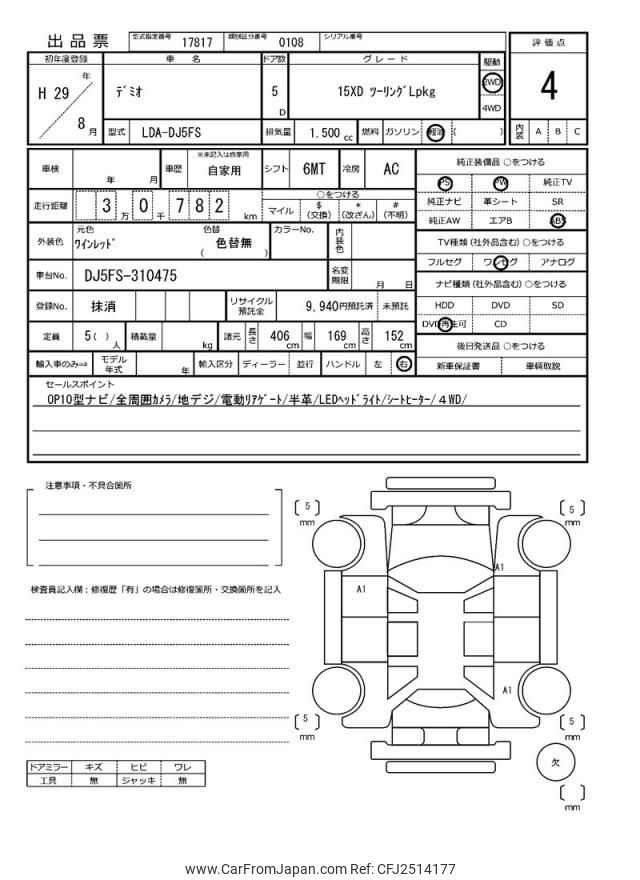 出品票 型式指定番号 17817 類別区分番号 0108 シリアル番号
初年度登録 車名 ドア数 グレード 駆動 評価点
H 29 年 8 月 デミオ 5 D 15XD ツーリングLpkg 2WD 4WD 4
型式 LDA-DJ5FS 排気量 1,500 cc 燃料 ガソリン 軽油 ( ) 内装 A B C
車検 年 月 車歴 ※未記入は自家用 自家用 シフト 6MT 冷房 AC
走行距離 3 万 0 千 7 8 2 km ○をつける マイル $ (交換) * (改ざん) # (不明)
外装色 元色 ワインレッド 色替 ( 色替無 ) カラーNo. 内装色
車台No. DJ5FS-310475 名変期限 月 日
登録No. 抹消 リサイクル預託金 9,940円預託済 未預託
定員 5 ( ) 人 積載量 kg 諸元 長さ 406 cm 幅 169 cm 高さ 152 cm
輸入車のみ⇒ モデル年式 年 輸入区分 ディーラー 並行 ハンドル 左 右
純正装備品 ○をつける
PS PW 純正TV
純正ナビ 革シート SR
純正AW エアB ABS
TV種類 (社外品含む) ○をつける
フルセグ ワンセグ アナログ
ナビ種類 (社外品含む) ○をつける
HDD DVD SD
DVD再生可 CD
後日発送品 ○をつける
新車保証書 車輌取説
セールスポイント
OP10型ナビ/全周囲カメラ/地デジ/電動リアゲート/半革/LEDヘッドライト/シートヒーター/4WD/
注意事項・不具合箇所
検査員記入欄:修復歴「有」の場合は修復箇所・交換箇所を記入
5 mm
5 mm
A1
A1
A1
5 mm
5 mm
欠
mm
ドアミラー キズ ヒビ ワレ
工具 無 ジャッキ 無
www.CarFromJapan.com Ref: CFJ2514177